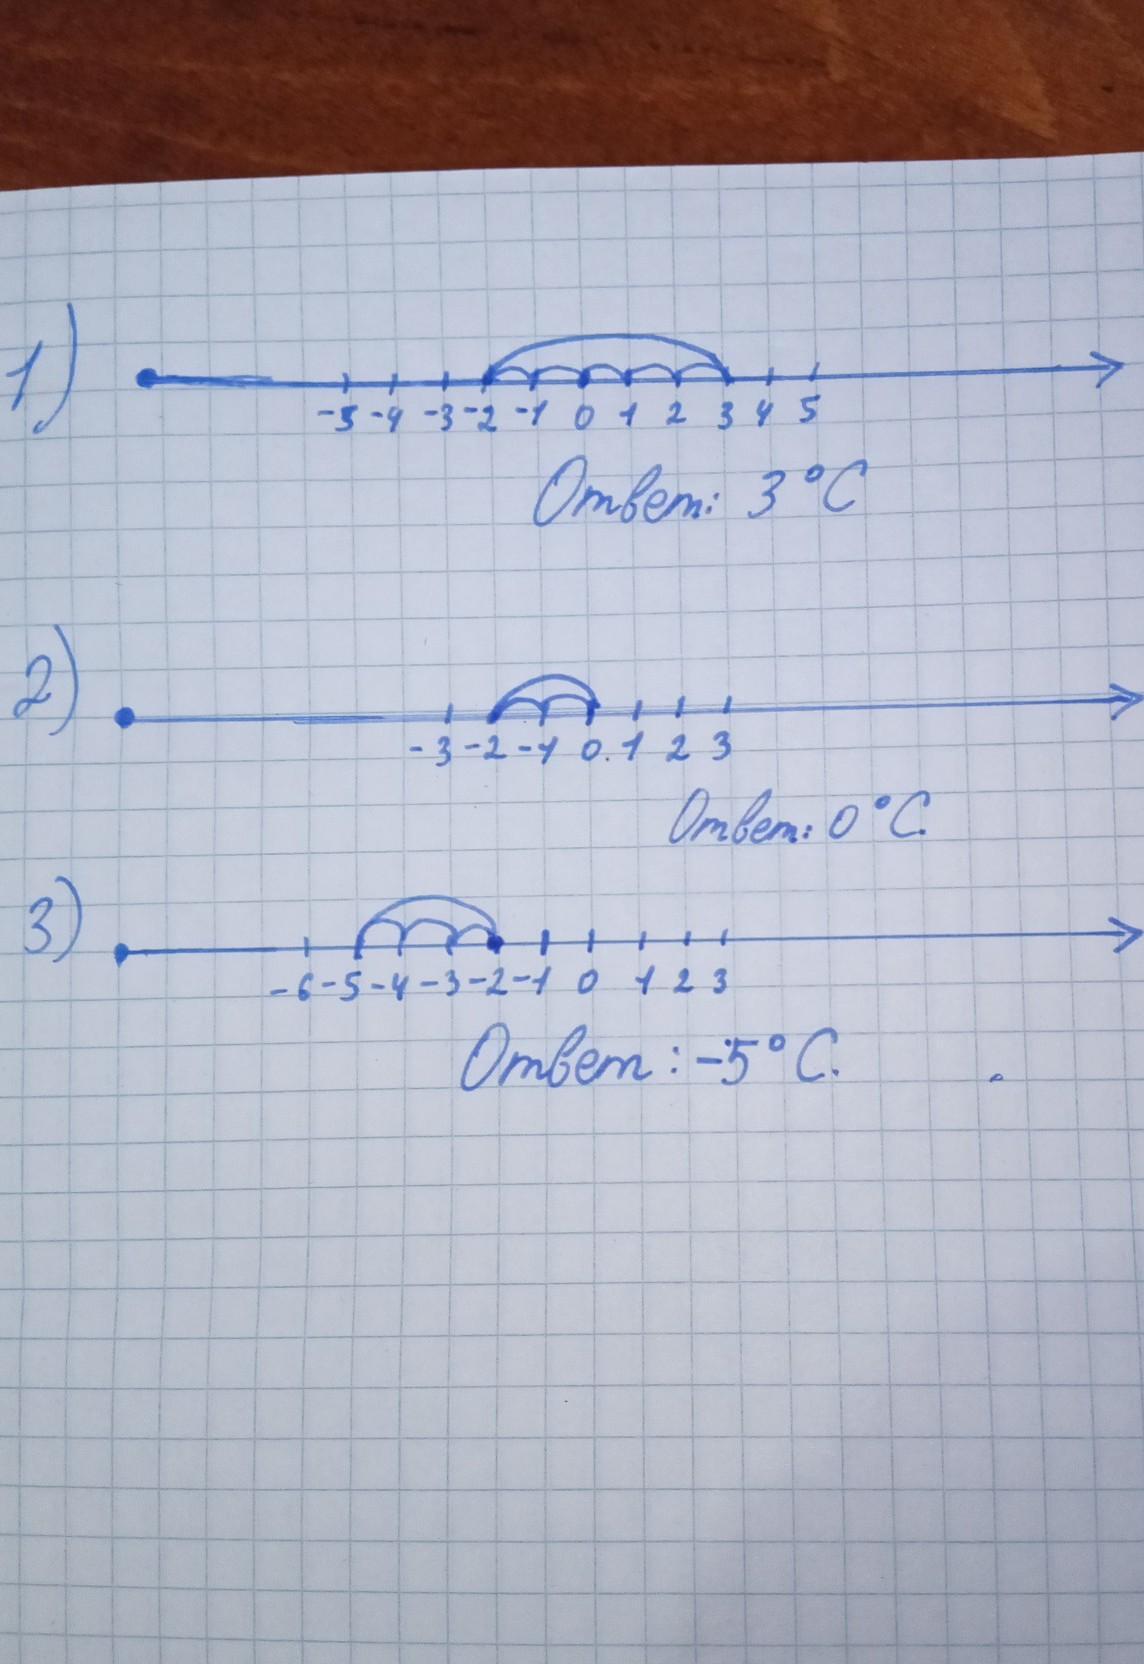 1)
-5 -4 -3 -2 -1 0 1 2 3 4 5
Ответ: 3°C
2)
-3 -2 -1 0. 1 2 3
Ответ: 0°C.
3)
-6 -5 -4 -3 -2 -1 0 1 2 3
Ответ: -5°C.